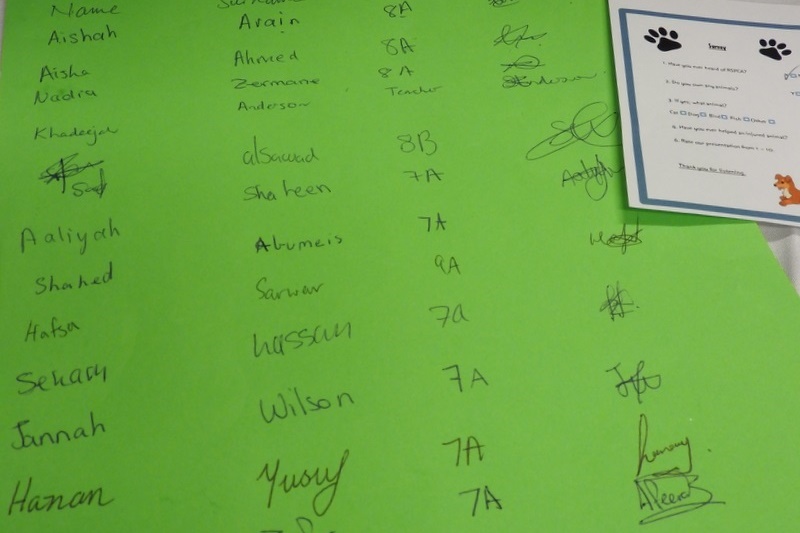 Name Surname
Aishah Arain 8A
Aisha Ahmed 8A
Nadia Zermane 8A
Khadeejah Anderson Teacher Anderson
alsawad 8B
Aaliyah Shaheen 7A
Shahed Abumeis 7A
Hafsa Sarwar 9A
hassan 7a
Jannah Wilson 7A
Hanan Yusuf 7A
7A
Survey
1. Have you ever heard of RSPCA?
2. Do you own any animals?
3. If yes, what animal?
Cat Dog Bird Fish Other
4. Have you ever helped an injured animal?
5. Rate our presentation from 1 - 10.
Thank you for listening.